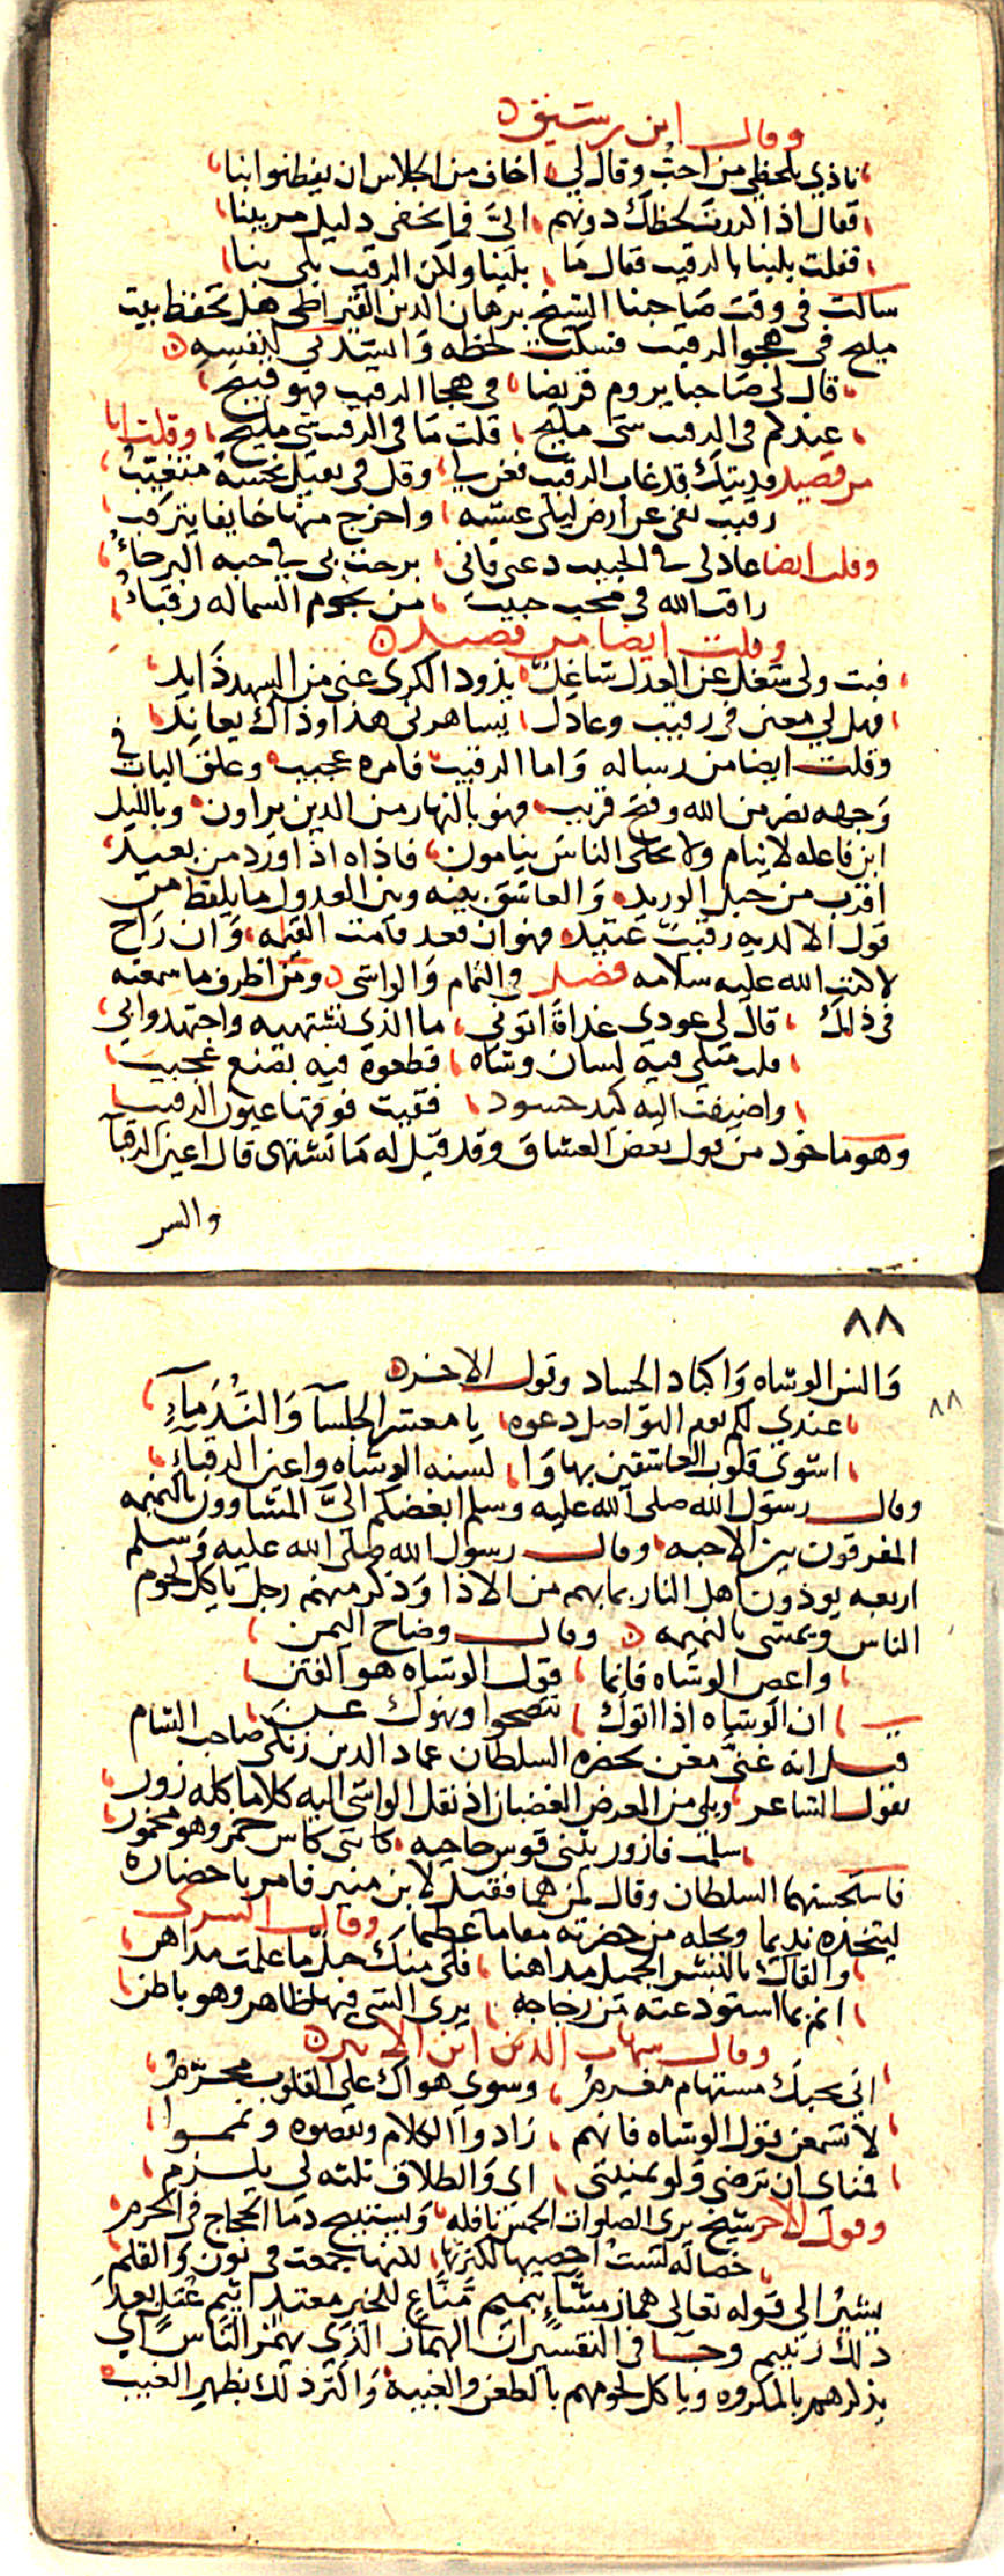 وقال ابن رشيق
ناذي بلحظي من احبّ وقال لي اخاف من الجلاس ان يفطنوا بنا
فقال اذا كررت لحظك دونهم اليّ فما يخفى دليل مريبنا
فقلت بلينا بالرقيب فقال ما بلينا ولكن الرقيب بلى بنا
سالت في وقت صاحبنا الشيخ برهان الدين القيراطي هل تحفظ بيت
مليح في هجو الرقيب فسكت لحظه وانشدني لنفسه
قال لي صاحبا يروم قريضا في هجا الرقيب فهو قبيح
عندكم في الرقيب شي مليح قلت ما في الرقيب شي مليح وقلت انا
من قصيد فديتك قد غاب الرقيب فغن لي وقل في ثقيل نحسه متغيب
رقيب نفى عن ارض ليلى عشيه واخرج منها خايفا يترقب
وقلت ايضا عاذلي في الحبيب دعني فاني برحت بي في حبه البرحاء
راقب الله في محب حبيب من نجوم السما له رقباء
وقلت ايضا من قصيد
فبت ولى شغل عن العذل شاغل يذود الكرى عني من السهد ذايد
فهل لي معنى في رقيب وعاذل يساهرني هذا وذاك يعاند
وقلت ايضا من رساله واما الرقيب فامره عجيب وعلق الباب في
وجهه نصر من الله وفتح قريب فهو بالنهار من الذين يراون وبالليل
ابن فاعله لا ينام ولا يخلي الناس ينامون فاذاه اذا اورد من بعيد
اقرب من حبل الوريد والعاشق بينه وبين العذول ما يلفظ من
قول الا لديه رقيب عتيد فهو ان قعد قامت القيمه وان راح
لا كتب الله عليه سلامه فصل في النمام والواشي ومن اظرف ما سمعته
في ذلك قال لي عودي غداة اتوني ما الذي تشتهيه واجتهدوا بي
قلت مقلي فيه لسان وشاه قطعوه فيه بقنع عجيب
واضيفت اليه كبد حسود فقيت فوقها عيون الرقيب
وهو ماخوذ من قول بعض العشاق وقد قيل له ما تشتهي قال اعين الرقبا
والسن
٨٨
٨٨
والسن الوشاه واكباد الحساد وقول الاخر
عندي لكم يوم التواصل دعوه يا معشر الجلسا والندماء
اشوى قلوب العاشقين بها وا لسنه الوشاه واعين الرقباء
وقال رسول الله صلى الله عليه وسلم ابغضكم الىّ المشاوون بالنميمه
المفرقون بين الاحبه وقال رسول الله صلى الله عليه وسلم
اربعه يوذون اهل النار بما بهم من الاذا وذكر منهم رجل ياكل لحوم
الناس ويمشى بالنميمه وقال وضاح اليمن
واعص الوشاه فانما قول الوشاه هو الفتن
ان الوشاه اذا اتوك تنصحوا ونهوك عن
قيل انه غنى مغن بحضره السلطان عماد الدين زنكى صاحب الشام
بقول الشاعر ويلى من المعرض الغضبان اذ نقل الواشي اليه كلاما كله زور
سلمت فازور يثنى قوس حاجبه كانني كاس خمر وهو مخمور
فاستحسنهما السلطان وقال لمن هما فقيل لابن منير فامر باحضاره
ليتخذه نديما ويحله من حضرته مقاما عظيما وقال السرى
والقاك بالنشر الجميل مداهنا فلي منك خل ما علمت مداهن
انم بما استودعته من زجاجه يرى الشي فيها ظاهر وهو باطن
وقال شهاب الدين ابن
اني بحبك مستهام مغرم وسوى هواك على القلوب محرّم
لا تسمعن بقول الوشاه فانهم زادوا الكلام ونقصوه ونمموا
فمناى ان ترضى ولو بمنيتى اى والطلاق ثلثه لى يلزم
وقول الاخر شيخ يرى الصلوات الخمس نافله ويستبيح دما الحجاج في الحرم
خصاله لست احصيها لكثرتها لكنها جمعت في نون والقلم
يشير الى قوله تعالى هماز مشّاء بنميم منّاع للخير معتد اثيم عتل بعد
ذلك زنيم وجا في التفسير ان الهماز الذي يهمز الناس اي
يذكرهم بالمكروه وياكل لحومهم بالطعن والغيبة واكثر ذلك بظهر الغيب